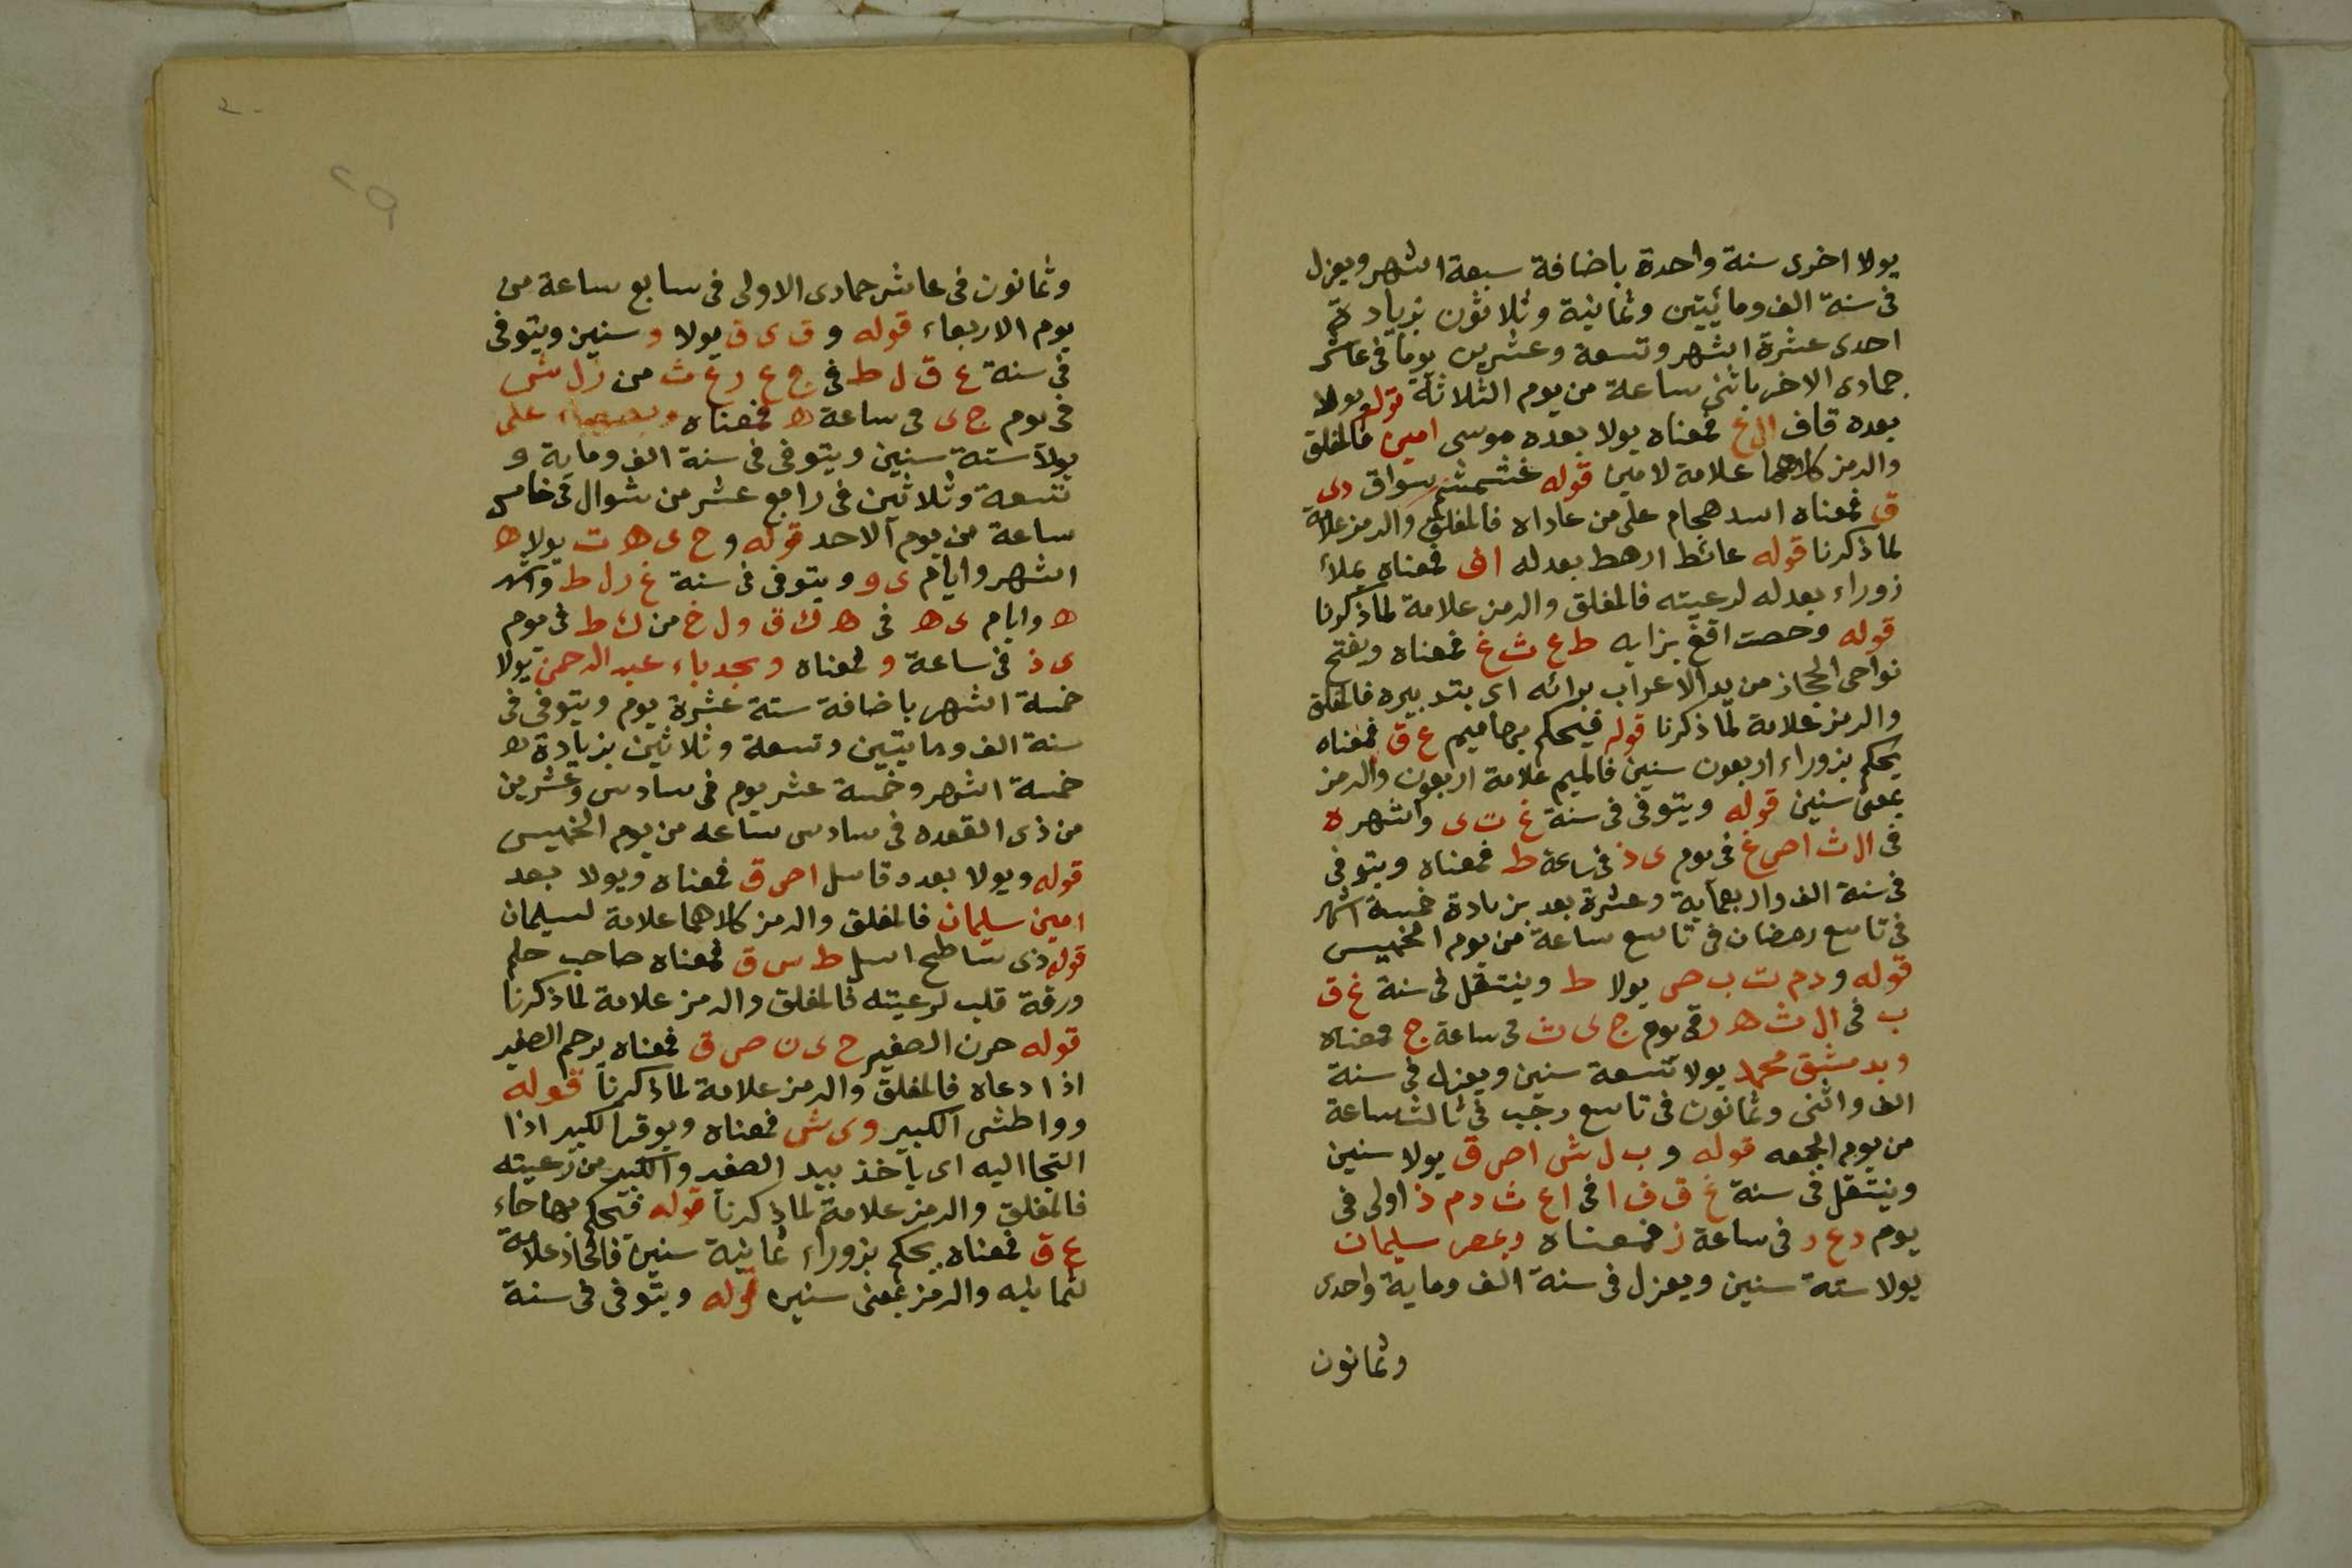 يولا اخرى سنة واحدة باضافة سبعة اشهر ويعزل
فى سنة الف ومائيتين وثمانية وثلاثون بزيادة
احدى عشرة اشهر وتسعة وعشرين يوما فى عاشر
جمادى الاخر باثنى ساعة من يوم الثلاثة قوله يولا
بعده قاف ال غ فمعناه يولا بعده موسى امين فالمغلق
والرمز كلاهما علامة لامين قوله سواق دى
ق فمعناه اسد هجام على من عاداه فالمغلق والرمز علامة
لما ذكرنا قوله عائط ارهط بعدله اف فمعناه يملأ
زوراء بعدله لرعيته فالمغلق والرمز علامة لما ذكرنا
قوله وحصت اقغ بزايه ط ع ث غ فمعناه ويفتح
نواحى الحجاز من يد الاعراب برائه اى بتدبيره فالمغلق
والرمز علامة لما ذكرنا قوله فيحكم بها ميم ع ق فمعناه
يحكم بزوراء اربعون سنين فالميم علامة اربعون والرمز
بمعنى سنين قوله ويتوفى فى سنة غ ت ى واشهر ه
فى ال ث اص غ فى يوم ى ذ فى ساعة ط فمعناه ويتوفى
فى سنة الف واربعماية وعشرة بعد بزيادة خمسة اشهر
فى تاسع رمضان فى تاسع ساعة من يوم الخميس
قوله ودم ت ب ص يولا ط وينتقل فى سنة غ ق
ب فى ال ث ه ر فى يوم ج ى ث فى ساعة ج فمعناه
وبدمشق محمد يولا تسعة سنين ويعزل فى سنة
الف واثنى وثمانون فى تاسع رجب فى ثالث ساعة
من يوم الجمعه قوله و ب ل ش اص ق يولا سنين
وينتقل فى سنة غ ق ف ا فى اع ث د م ذ اولى فى
يوم د ع ر فى ساعة ز فمعناه وبمصر سليمان
يولا ستة سنين ويعزل فى سنة الف وماية واحدى
وثمانون
وثمانون فى عاشر جمادى الاولى فى سابع ساعة من
يوم الاربعاء قوله و ق ى ق يولا و سنين ويتوفى
فى سنة غ ق ل ط فى ج ع ر غ ث من ز ل ش
فى يوم ج ى فى ساعة ه فمعناه على
يولا ستة سنين ويتوفى فى سنة الف وماية و
تسعة وثلاثين فى رابع عشر من شوال فى خامس
ساعة من يوم الاحد قوله و ح ى ه ت يولا ه
اشهر وايام ى و ويتوفى فى سنة غ ر ل ط واشهر
ه وايام ى ه فى ه ك ق و ل خ من ك ط فى يوم
ى ذ فى ساعة و فمعناه وبجدباء عبد الرحمن يولا
خمسة اشهر باضافة ستة عشرة يوم ويتوفى فى
سنة الف ومايتين وتسعة وثلاثين بزيادة ه
خمسة اشهر وخمسة عشر يوم فى سادس وعشرين
من ذى القعده فى سادس ساعه من يوم الخميس
قوله ويولا بعده قاسل اص ق فمعناه ويولا بعد
امين سليمان فالمغلق والرمز كلاهما علامة لسليمان
قوله ذى ساطح اسل ط س ق فمعناه صاحب حلم
ورقة قلب لرعيته فالمغلق والرمز علامة لما ذكرنا
قوله حرن الصغير ح ى ن ص ق فمعناه يرحم الصغير
اذا دعاه فالمغلق والرمز علامة لما ذكرنا قوله
وواطش الكبير و ى ش فمعناه ويوقر الكبير اذا
التجا اليه اى يأخذ بيد الصغير والكبير من رعيته
فالمغلق والرمز علامة لما ذكرنا قوله فيحكم بها حاء
ع ق فمعناه يحكم بزوراء ثمانية سنين فالحاء علامة
لثمانيه والرمز بمعنى سنين قوله ويتوفى فى سنة